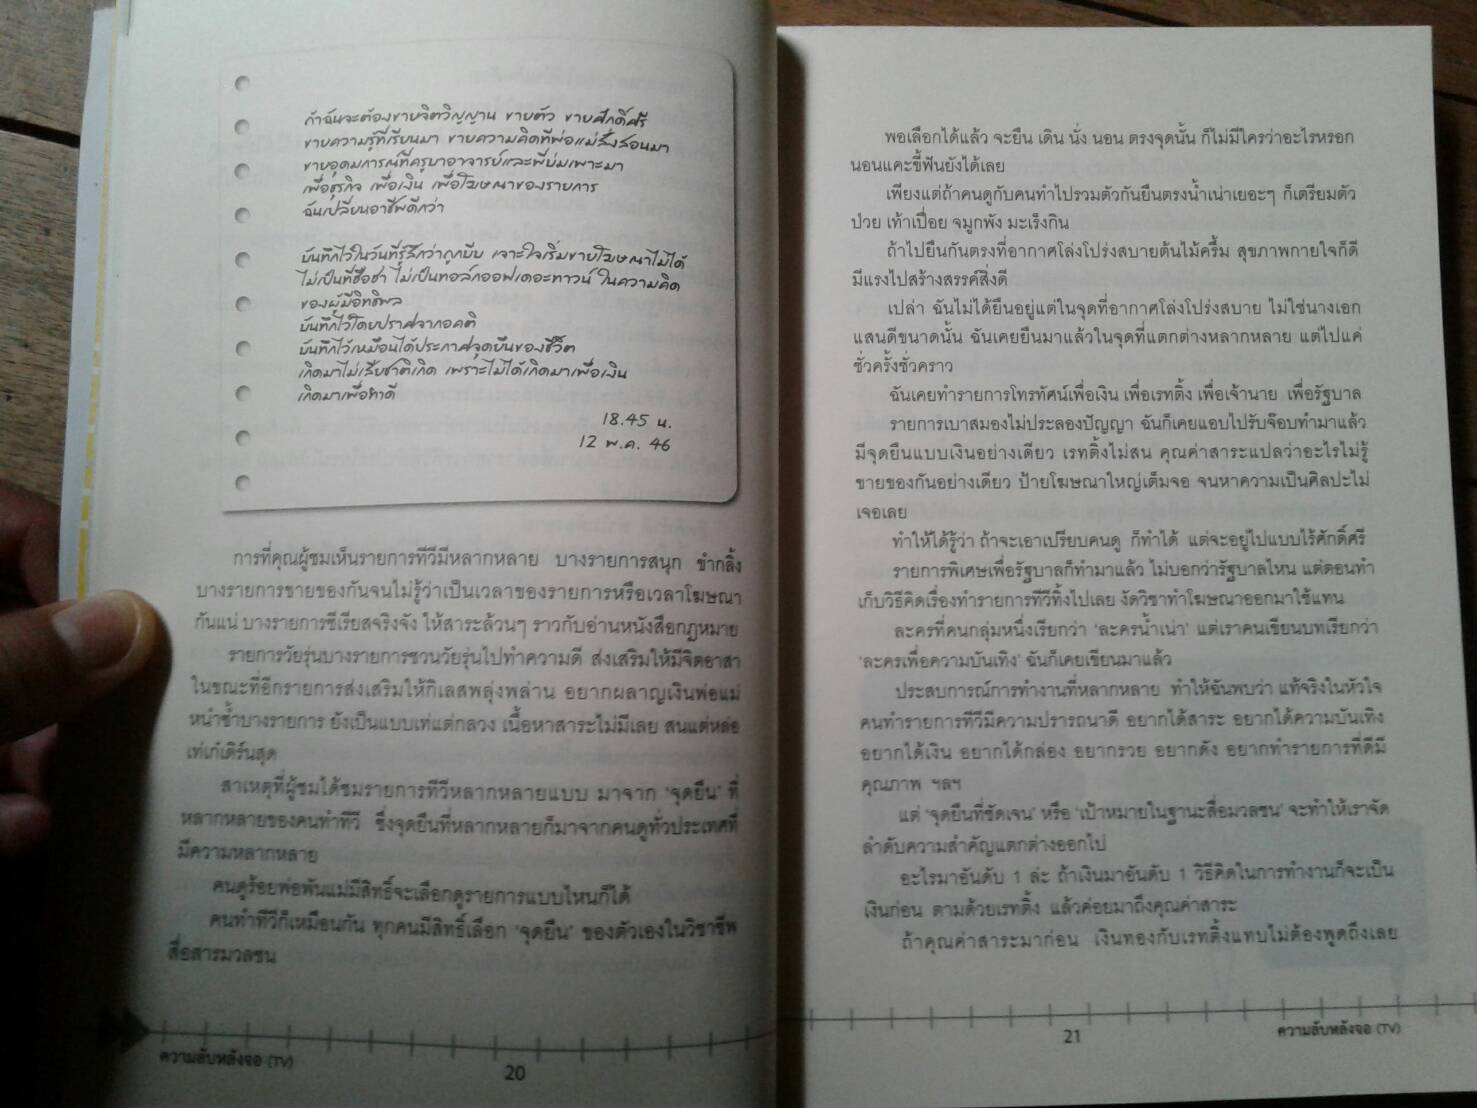 ถ้าฉันจะต้องขายจิตวิญญาน ขายตัว ขายศักดิ์ศรี
ขายความรู้ที่เรียนมา ขายความคิดที่พ่อแม่สั่งสอนมา
ขายอุดมการณ์ที่ครูบาอาจารย์และพี่บ่มเพาะมา
เพื่อธุรกิจ เพื่อเงิน เพื่อโฆษณาของรายการ
ฉันเปลี่ยนอาชีพดีกว่า
บันทึกไว้ในวันที่รู้สึกว่าถูกบีบ เจาะใจเริ่มขายโฆษณาไม่ได้
ไม่เป็นที่ชื่อช่า ไม่เป็นทอล์กออฟเดอะทาวน์ ในความคิด
ของผู้มีอิทธิพล
บันทึกไว้โดยปราศจากอคติ
บันทึกไว้เหมือนได้ประกาศจุดยืนของชีวิต
เกิดมาไม่เสียชาติเกิด เพราะไม่ได้เกิดมาเพื่อเงิน
เกิดมาเพื่อทำดี
18.45 น.
12 พ.ค. 46
การที่คุณผู้ชมเห็นรายการทีวีมีหลากหลาย บางรายการสนุก ขำกลิ้ง
บางรายการขายของกันจนไม่รู้ว่าเป็นเวลาของรายการหรือเวลาโฆษณา
กันแน่ บางรายการซีเรียสจริงจัง ให้สาระล้วนๆ ราวกับอ่านหนังสือกฎหมาย
รายการวัยรุ่นบางรายการชวนวัยรุ่นไปทำความดี ส่งเสริมให้มีจิตอาสา
ในขณะที่อีกรายการส่งเสริมให้กิเลสพลุ่งพล่าน อยากผลาญเงินพ่อแม่
หนำซ้ำบางรายการ ยังเป็นแบบเท่แต่กลวง เนื้อหาสาระไม่มีเลย สนแต่หล่อ
เท่เก๋เดิร์นสุด
สาเหตุที่ผู้ชมได้ชมรายการทีวีหลากหลายแบบ มาจาก 'จุดยืน' ที่
หลากหลายของคนทำทีวี ซึ่งจุดยืนที่หลากหลายก็มาจากคนดูทั่วประเทศที่
มีความหลากหลาย
คนดูร้อยพ่อพันแม่มีสิทธิ์จะเลือกดูรายการแบบไหนก็ได้
คนทำทีวีก็เหมือนกัน ทุกคนมีสิทธิ์เลือก 'จุดยืน' ของตัวเองในวิชาชีพ
สื่อสารมวลชน
ความลับหลังจอ (TV)
20
พอเลือกได้แล้ว จะยืน เดิน นั่ง นอน ตรงจุดนั้น ก็ไม่มีใครว่าอะไรหรอก
นอนแคะขี้ฟันยังได้เลย
เพียงแต่ถ้าคนดูกับคนทำไปรวมตัวกันยืนตรงน้ำเน่าเยอะๆ ก็เตรียมตัว
ป่วย เท้าเปื่อย จมูกพัง มะเร็งกิน
ถ้าไปยืนกันตรงที่อากาศโล่งโปร่งสบายต้นไม้ครึ้ม สุขภาพกายใจก็ดี
มีแรงไปสร้างสรรค์สิ่งดี
เปล่า ฉันไม่ได้ยืนอยู่แต่ในจุดที่อากาศโล่งโปร่งสบาย ไม่ใช่นางเอก
แสนดีขนาดนั้น ฉันเคยยืนมาแล้วในจุดที่แตกต่างหลากหลาย แต่ไปแค่
ชั่วครั้งชั่วคราว
ฉันเคยทำรายการโทรทัศน์เพื่อเงิน เพื่อเรทติ้ง เพื่อเจ้านาย เพื่อรัฐบาล
รายการเบาสมองไม่ประลองปัญญา ฉันก็เคยแอบไปรับจ๊อบทำมาแล้ว
มีจุดยืนแบบเงินอย่างเดียว เรทติ้งไม่สน คุณค่าสาระแปลว่าอะไรไม่รู้
ขายของกันอย่างเดียว ป้ายโฆษณาใหญ่เต็มจอ จนหาความเป็นศิลปะไม่
เจอเลย
ทำให้ได้รู้ว่า ถ้าจะเอาเปรียบคนดู ก็ทำได้ แต่จะอยู่ไปแบบไร้ศักดิ์ศรี
รายการพิเศษเพื่อรัฐบาลก็ทำมาแล้ว ไม่บอกว่ารัฐบาลไหน แต่ตอนทำ
เก็บวิธีคิดเรื่องทำรายการทีวีทิ้งไปเลย งัดวิชาทำโฆษณาออกมาใช้แทน
ละครที่คนกลุ่มหนึ่งเรียกว่า 'ละครน้ำเน่า' แต่เราคนเขียนบทเรียกว่า
'ละครเพื่อความบันเทิง' ฉันก็เคยเขียนมาแล้ว
ประสบการณ์การทำงานที่หลากหลาย ทำให้ฉันพบว่า แท้จริงในหัวใจ
คนทำรายการทีวีมีความปรารถนาดี อยากได้สาระ อยากได้ความบันเทิง
อยากได้เงิน อยากได้กล่อง อยากรวย อยากดัง อยากทำรายการที่ดีมี
คุณภาพ ฯลฯ
แต่ 'จุดยืนที่ชัดเจน' หรือ 'เป้าหมายในฐานะสื่อมวลชน' จะทำให้เราจัด
ลำดับความสำคัญแตกต่างออกไป
อะไรมาอันดับ 1 ล่ะ ถ้าเงินมาอันดับ 1 วิธีคิดในการทำงานก็จะเป็น
เงินก่อน ตามด้วยเรทติ้ง แล้วค่อยมาถึงคุณค่าสาระ
ถ้าคุณค่าสาระมาก่อน เงินทองกับเรทติ้งแทบไม่ต้องพูดถึงเลย
21
ความลับหลังจอ (TV)